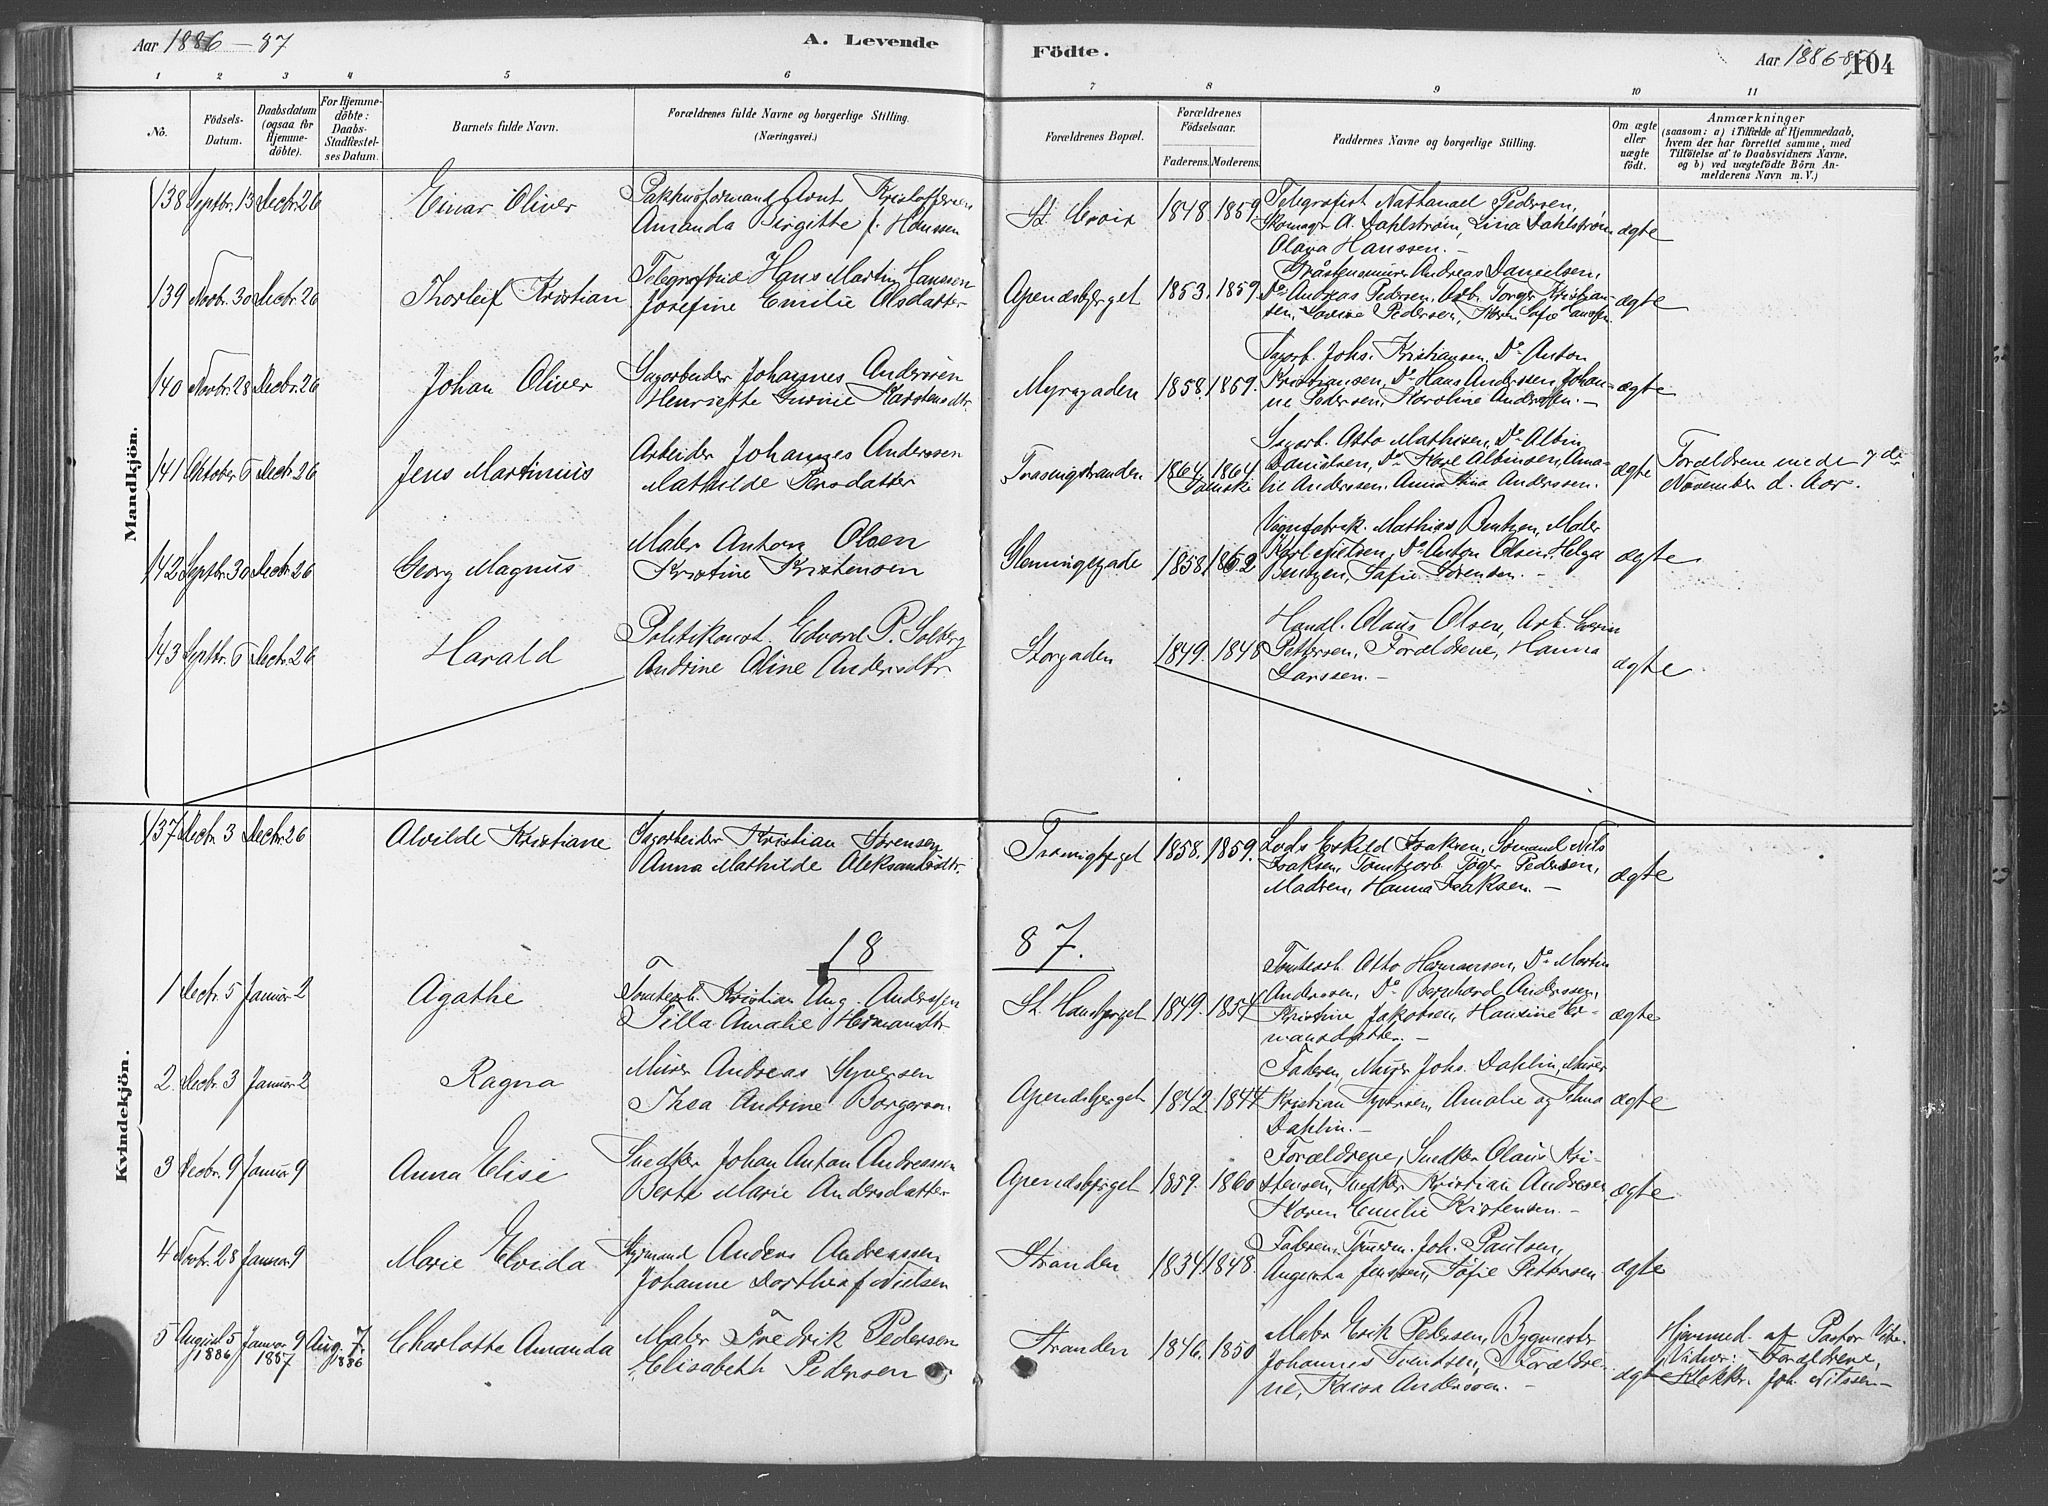 Aar 1886-87
A. Levende
Födte.
Aar 1886-87
104
1 2 3 4 5 6 7 8 9 10 11
No.
Födsels-Datum.
Daabsdatum (ogsaa for Hjemme-döbte).
For Hjemme-döbte: Daabs-Stadfæstelses Datum.
Barnets fulde Navn.
Forældrenes fulde Navne og borgerlige Stilling. (Næringsvei.)
Forældrenes Bopæl.
Forældrenes Födselsaar.
Faderens. Moderens.
Faddernes Navne og borgerlige Stilling.
Om ægte eller uægte födt.
Anmærkninger
(saasom: a) i Tilfælde af Hjemmedaab, hvem der har forrettet samme, med Tilföielse af to Daabsvidners Navne, og b) ved uægtefödte Börn Anmelderens Navn m. V.)
Mandkjön.
138 Septbr. 13 Decbr. 26 Einar Oliver
Pakhusformand Arnt Kristoffersen
Amanda Birgitte f. Hanssen
St. Croix 1848. 1859.
Telegrafist Nathanael Pedersen,
Skomagr A. Dahlstrøm, Lina Dahlstrøm
Olava Hanssen.-
ægte
139 Novbr. 30 Decbr. 26 Thorleif Kristian
Hans Martin Hanssen
Josefine Emilie Olsdatter
Apendsbjerget 1853. 1859.
Gråstensmurer Andreas Danielsen,
Do Andreas Pedersen, Arb. Torger Kristian-
sen, Lovise Pedersen, Karen Sofie
ægte
140 Novbr. 28 Decbr. 26 Johan Oliver
Sagarbeider Johannes Anderssen
Henriette Gurine Karstensdtr.
Myragaden 1858. 1859.
Sagarb. Johs. Kristiansen, Do Anton
Kristiansen, Do Hans Anderssen, Johan-
ne Pedersen, Karoline Anderssen.-
ægte
141 Oktober 6 Decbr. 26 Jens Martinius
Arbeider Johannes Anderssen
Mathilde Larsdatter
Trosvigstranden 1864 1864
Sagarb. Otto Mathisen, Do Albin
Danielsen, Do Karl Albinsen, Ama-
lie Anderssen, Anna Stina Anderssen.
ægte
Forældrene viede 7de
November d. Aar.
142 Septbr. 30 Decbr. 26 Georg Magnus
Maler Anton Olsen
Kristine Kristensen
Glemmingegade 1858. 1862
Vognfabrik. Mathias Bentzen, Maler
Karl Nielsen, Do Anton Olsen, Helga
Bentzen, Sofie Sørensen.-
ægte
143 Septbr. 6 Decbr. 26 Harald
Politikonst. Edvard P. Solberg
Andrine Oline Andersdtr.
Storgaden 1849. 1848
Handl. Olaus Olsen, Arb. Everin
Pettersen, Forældrene, Hanna
Larssen.-
ægte
Kvindekjön.
137 Decbr. 3 Decbr. 26 Alvilde Kristiane
Sagarbeider Kristian Sørensen
Anna Mathilde Aleksandersdtr.
1858. 1859.
Lods Eskild Isaksen, Sømand Nils
Isaksen, Tomtearb Tøger Pedersen,
Madsen, Hanna Isaksen.-
ægte
18 87.
1 Decbr. 5 Januar 2 Agathe
Tomtearb. Kristian Aug. Anderssen
Tilla Amalie Hermansdtr.
St. Hansbjerget 1849. 1854
Tomtearb. Otto Hermansen, Do Martin
Anderssen, Do Bernhard Anderssen,
Kristine Jakobsen, Hansine Her-
mansdatter.-
ægte
2. Decbr. 3 Januar 2 Ragna
Murer Andreas Syversen
Thea Andrine Borgersen
Apendsbjerget 1842. 1844
Faderen, Murer Johs. Dahlin, Murer
Kristian Syversen, Amalie og Selma
Dahlin.-
ægte
3 Decbr. 9 Januar 9 Anna Elise
Snedker Johan Anton Andreassen
Berte Marie Andersdatter
Apendsbjerget 1859. 1860
Forældrene, Snedker Olaus Kri-
stensen, Snedker Kristian Andresen
Karen Emilie Kristensen.-
ægte
4 Novbr. 28 Januar 9 Marie Elvida
Styrmand Anders Andreassen
Johanne Dorthea f. Nielsen
Stranden 1834. 1848.
Faderen, Tømerm. Joh. Paulsen,
Jenssen, Sofie Pettersen
ægte
5 August 5 1886 Januar 9 1887 Aug. 7. 1886 Charlotte Amanda
Maler Fredrik Pedersen
Elisabeth Pedersen
Stranden 1846. 1850
Maler Erik Pedersen, Bygmester
Johannes Svendsen, Forældre-
ne, Kaisa Anderssen.-
ægte
Hjemmed. af Pastor
Vidner: Forældrene,
Klokker Joh. Nilssen-